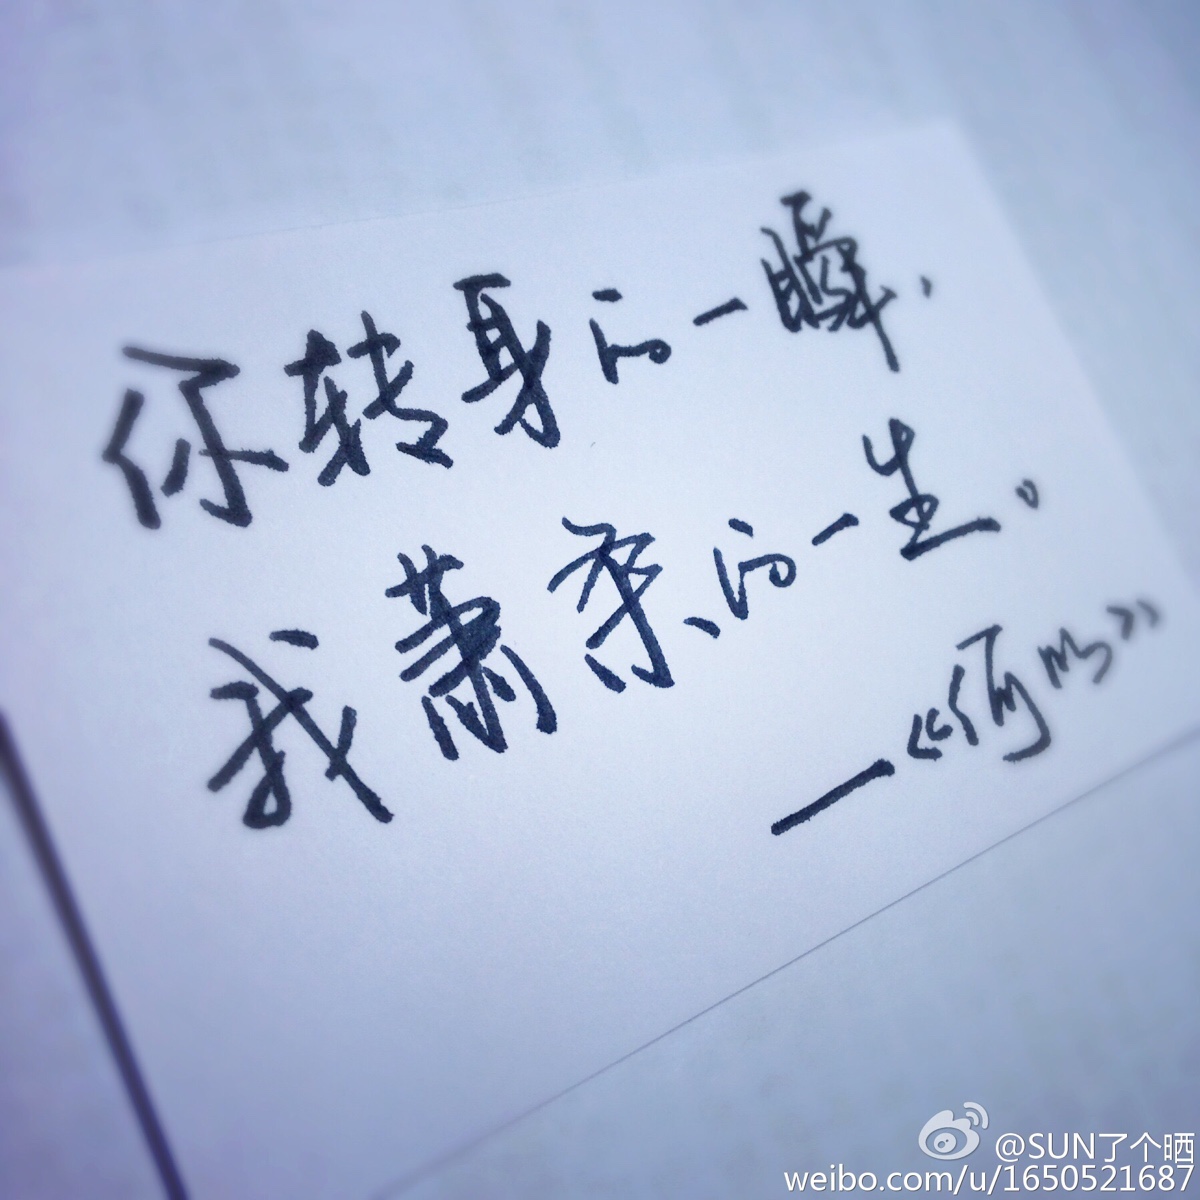 你转身的一瞬，
我萧条的一生。
—《倚ぬ》
@SUN了个晒
weibo.com/u/1650521687